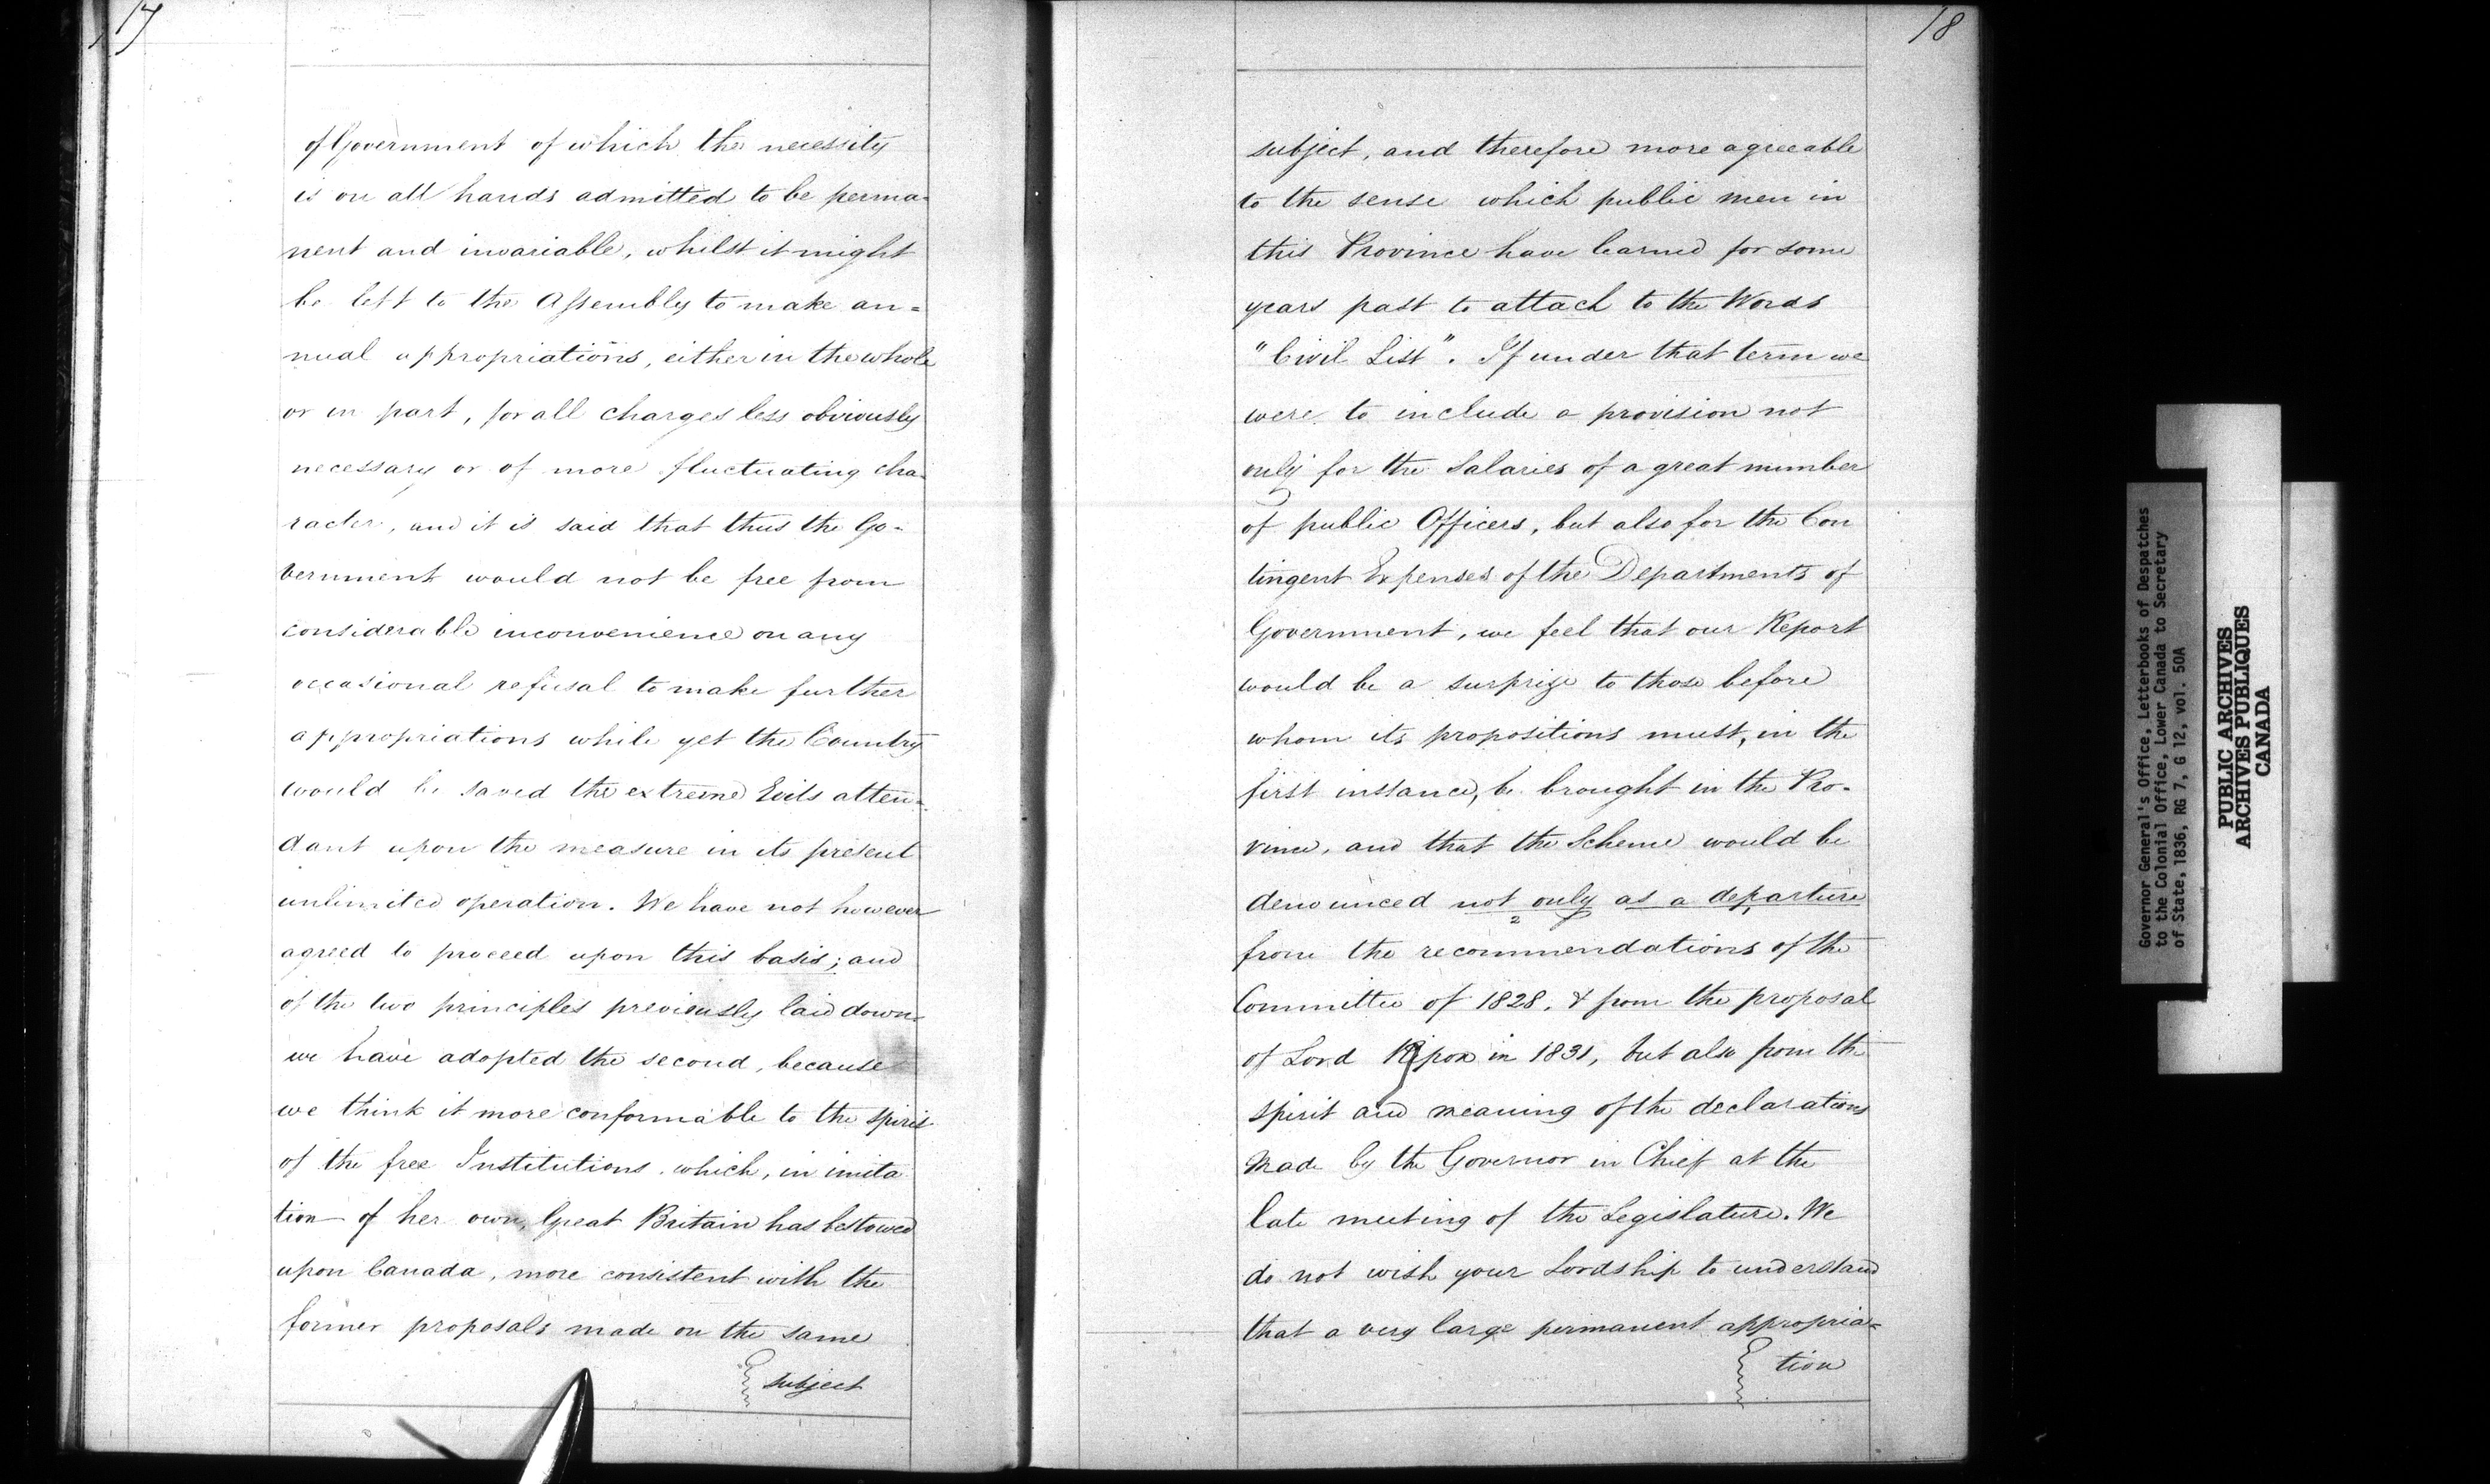 17
of Government of which the necessity
is on all hands admitted to be perma-
nent and invariable, whilst it might
be left to the Assembly to make an=
nual appropriations, either in the whole
or in part, for all charges less obviously
necessary or of more fluctuating cha-
racter, and it is said that thus the Go-
vernment would not be free from
considerable inconvenience on any
occasional refusal to make further
appropriations while yet the Country
would be saved the extreme Evils atten-
dant upon the measure in its present
unlimited operation. We have not however
agreed to proceed upon this basis; and
of the two principles previously laid down
we have adopted the second, because
we think it more conformable to the spirit
of the free Institutions which, in imita
tion of her own, Great Britain has bestowed
upon Canada, more consistent with the
former proposals made on the same
subject
18
subject, and therefore more agreeable
to the sense which public men in
this Province have learned for some
years past to attach to the Words
"Civil List". If under that term we
were to include a provision not
only for the Salaries of a great number
of public Officers, but also for the Con
tingent Expenses of the Departments of
Government, we feel that our Report
would be a surprize to those before
whom its propositions must, in the
first instance, be brought in the Pro-
vince, and that the Scheme would be
denounced not only as a departure
from the recommendations of the
Committee of 1828, & from the proposal
of Lord Ripon in 1831, but also from the
spirit and meaning of the declarations
made by the Governor in Chief at the
late meeting of the Legislature. We
do not wish your Lordship to understand
that a very large permanent appropria=
tion
Governor General's Office, Letterbooks of Despatches
to the Colonial Office, Lower Canada to Secretary
of State, 1836, RG 7, G 12, vol. 50A
PUBLIC ARCHIVES
ARCHIVES PUBLIQUES
CANADA